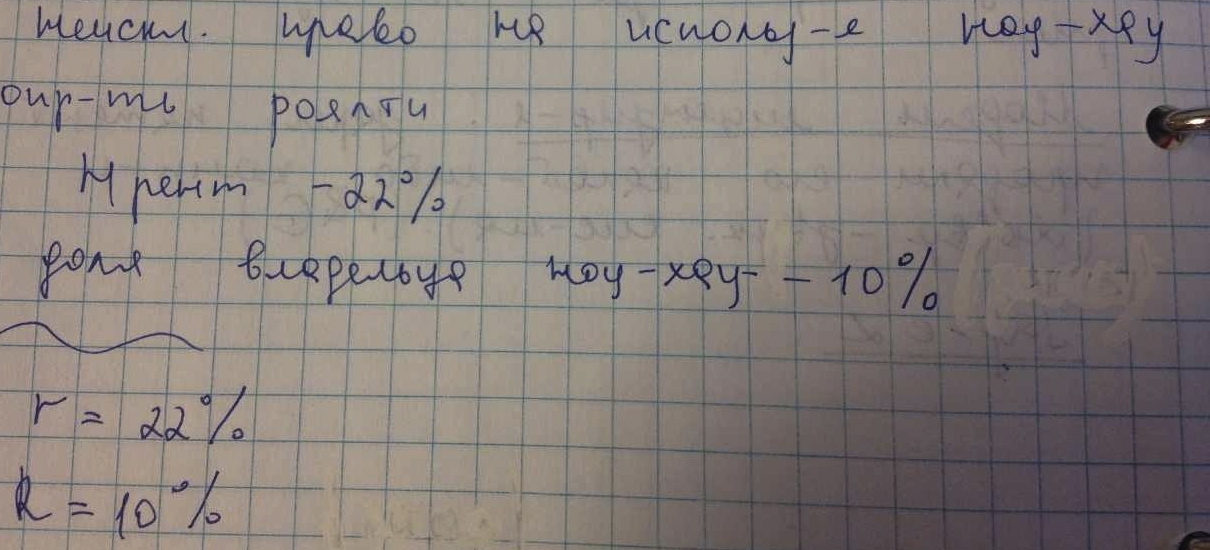 неискл. право на использ-е ноу-хау
опр-ть роялти
Н рент - 22%
доля владельца ноу-хау - 10%
r = 22%
R = 10%